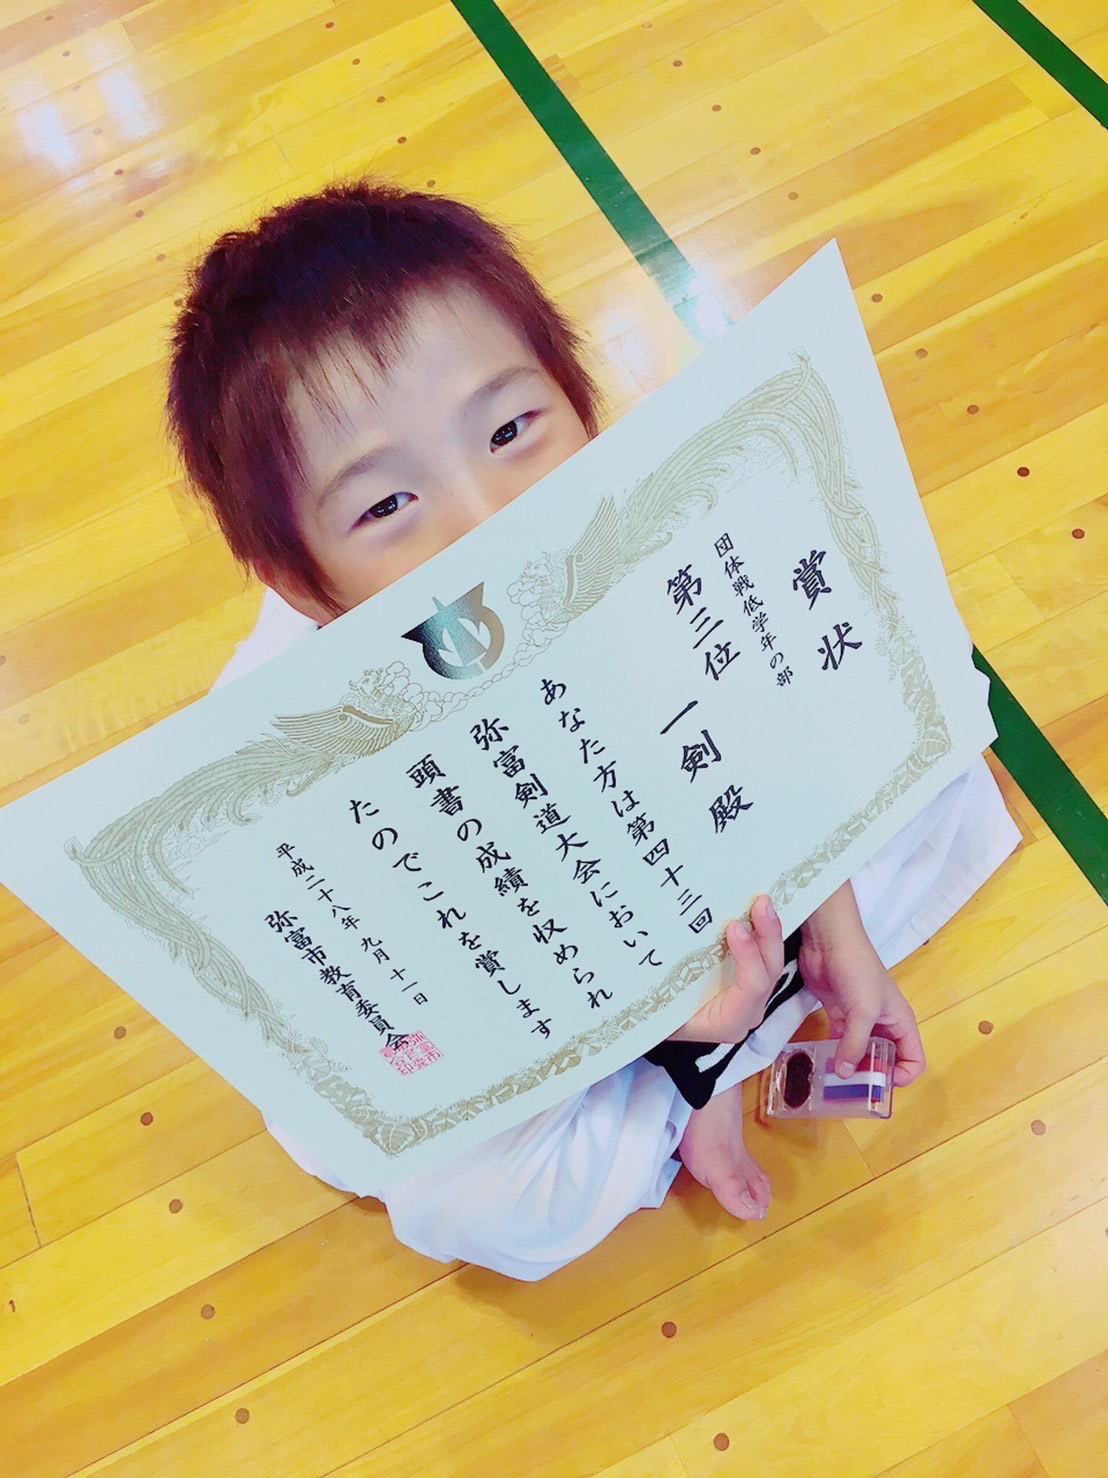 賞状
団体戦低学年の部
第三位 一剣 殿
あなた方は第四十三回
弥富剣道大会において
頭書の成績を収められ
たのでこれを賞します
平成二十八年 九月 十一日
弥富市教育委員会